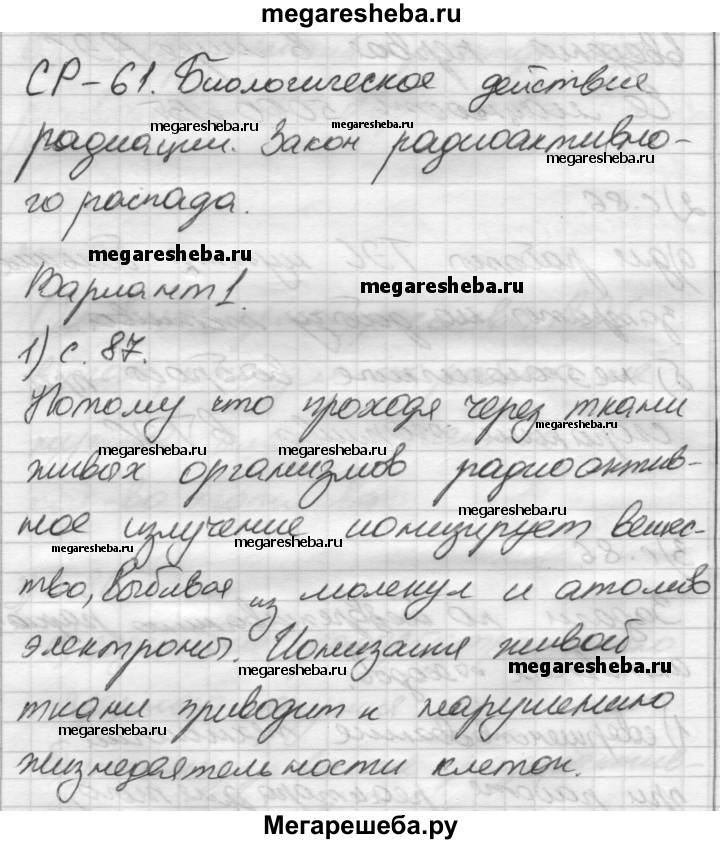 megaresheba.ru
СР-61. Биологическое действие
megaresheba.ru megaresheba.ru
радиации. Закон радиоактивно-
megaresheba.ru
го распада.
megaresheba.ru
Вариант 1. megaresheba.ru
1) с. 87.
Потому что проходя через ткани
megaresheba.ru
megaresheba.ru megaresheba.ru
живых организмов радиоактив-
megaresheba.ru
ное излучение ионизирует вещес-
megaresheba.ru megaresheba.ru
тво, выбивая из молекул и атомов
megaresheba.ru
электроны. Ионизация живой
megaresheba.ru megaresheba.ru
ткани приводит к нарушению
megaresheba.ru megaresheba.ru
жизнедеятельности клеток.
Мегарешеба.ру